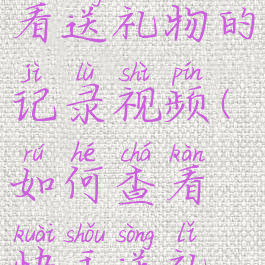 看送礼物的
jì lù shì pín
记录视频(
rú hé chá kàn
如何查看
kuài shǒu sòng lǐ
快手送礼